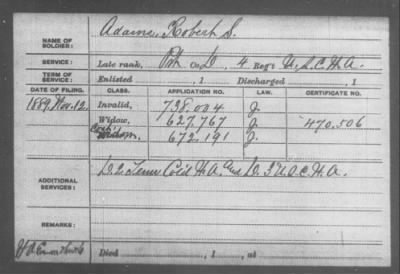 NAME OF SOLDIER: Adams, Robert S.
SERVICE: Late rank, Pvt Co. D, 4 Reg't U.S.C.H.A.
TERM OF SERVICE: Enlisted , 1 Discharged , 1
DATE OF FILING. CLASS. APPLICATION NO. LAW. CERTIFICATE NO.
1889, Nov. 12, Invalid, 738.004 J.
Widow, 627,767 J. 470.506
672.191 J.
ADDITIONAL SERVICES: D. 2 Tenn Col'd H.A. and D. 3 U.S.C.H.A.
REMARKS:
Died , 1 , at